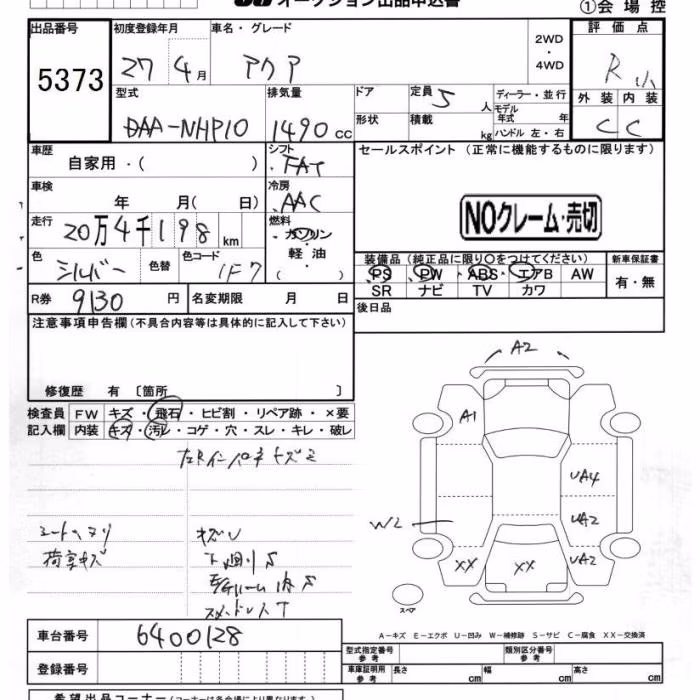 オークション出品申込書
①会場控
出品番号 初度登録年月 車名・グレード 評価点
5373 27年4月 アクア 2WD・4WD R
型式 排気量 ドア 定員 5人 ディーラー・並行 外装 内装
DAA-NHP10 1490cc 形状 積載 kg モデル年式 年 C C
ハンドル 左・右
車歴 シフト セールスポイント (正常に機能するものに限ります)
自家用・( ) FAT
車検 冷房
年 月( 日) AAC
NOクレーム・売切
走行 燃料
20万4千198km ガソリン・軽油
( )
色 シルバー 色替 色コード 1F7
装備品(純正品に限り○をつけてください) 新車保証書
PS PW ABS エアB AW 有・無
SR ナビ TV カワ
R券 9130円 名変期限 月 日
後日品
注意事項申告欄(不具合内容等は具体的に記入して下さい)
修復歴 有 〔箇所 〕
検査員 FW キズ・飛石・ヒビ割・リペア跡・×要
記入欄 内装 キズ・汚レ・コゲ・穴・スレ・キレ・破レ
キズU
A2
A1
UA4
UA2
UA2
W2
XX
XX
スペア
A-キズ E-エクボ U-凹み W-補修跡 S-サビ C-腐食 XX-交換済
車台番号 6400128
型式指定番号 参考 類別区分番号 参考
登録番号
車庫証明用 参考 長さ cm 幅 cm 高さ cm
希望出品コーナー(コーナーは各会場により異なります)